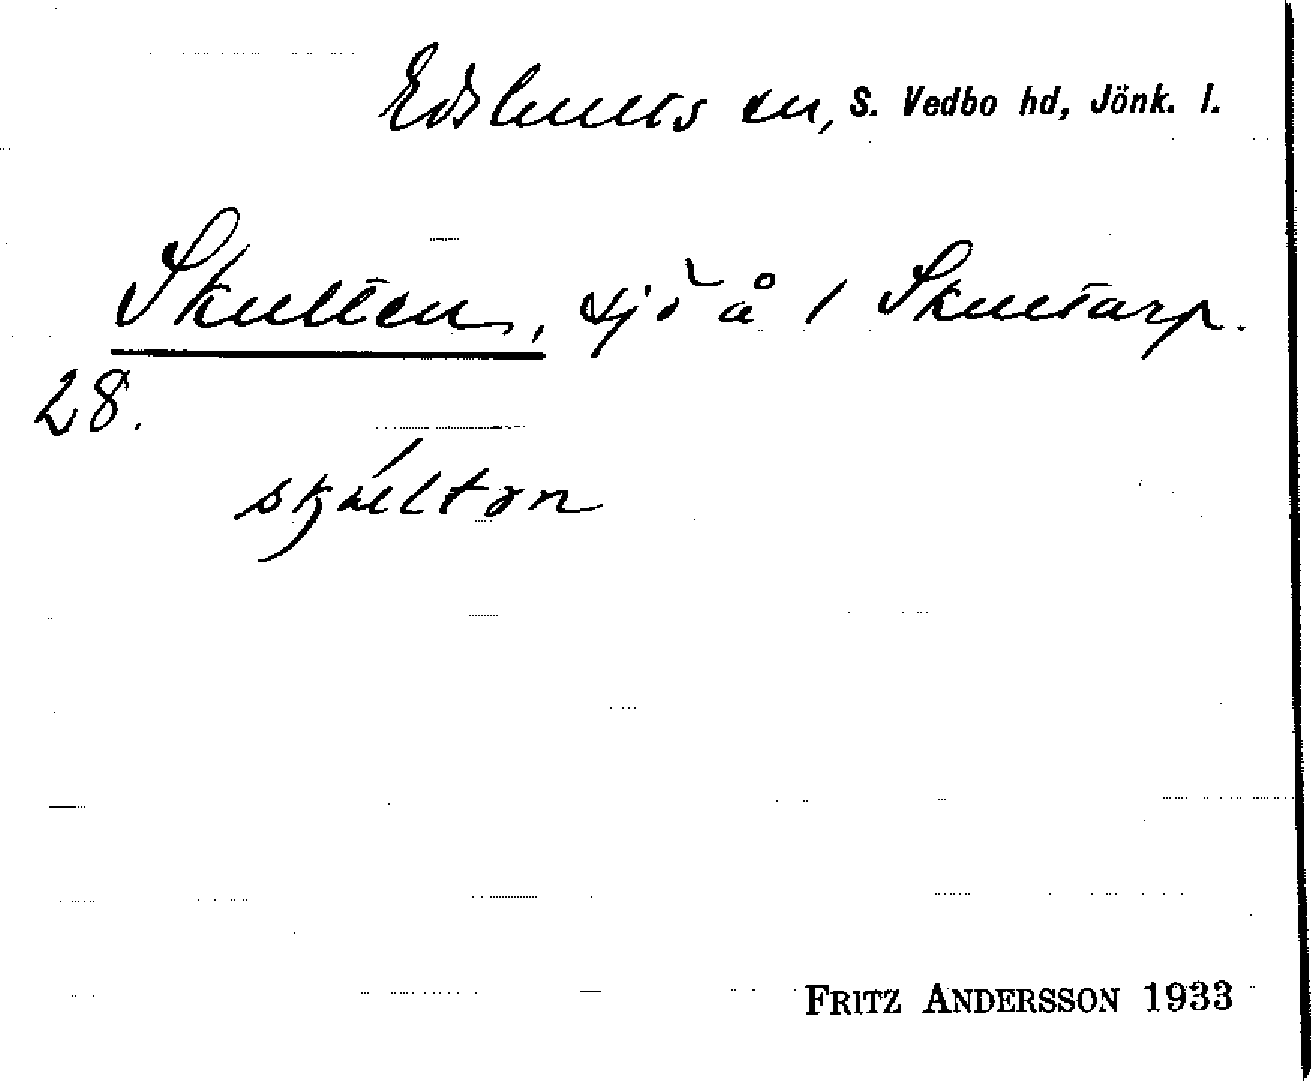 Edshults sn, S. Vedbo hd, Jönk. l.
Skulten, sjö å 1 Skultarp.
28.
skúltən
FRITZ ANDERSSON 1933